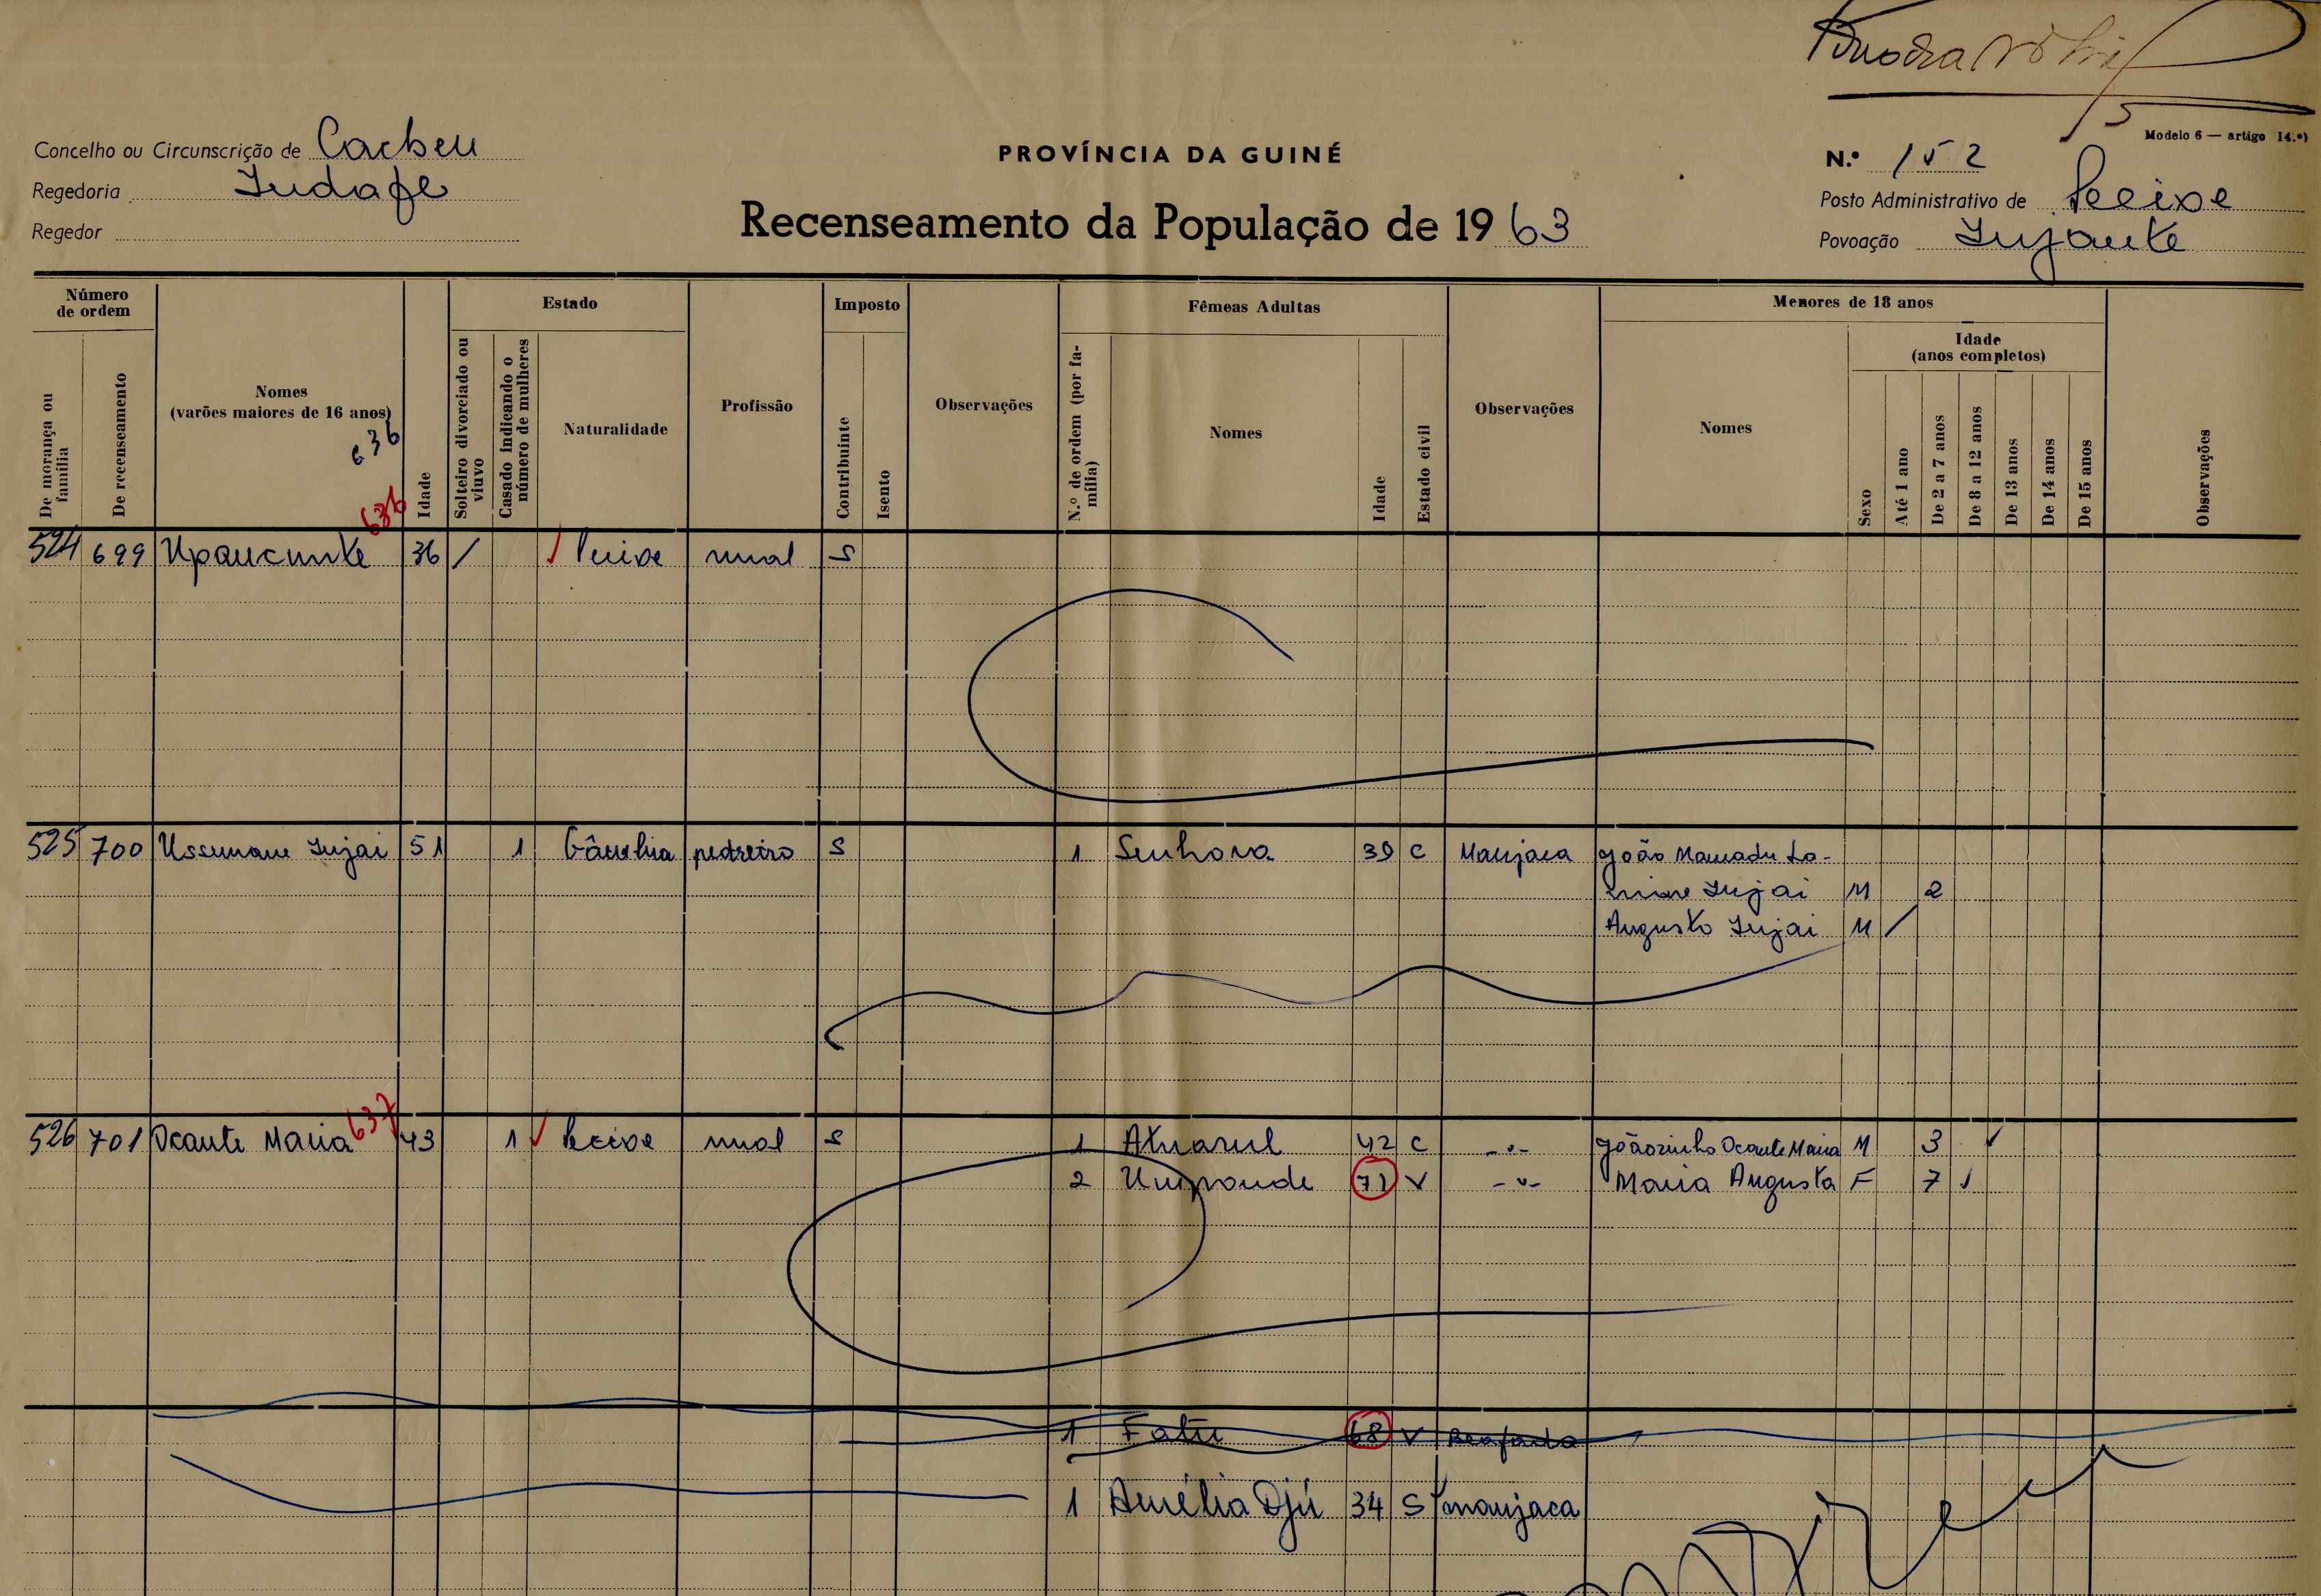 Modelo 6 — artigo 14.º)
Concelho ou Circunscrição de Cacheu
PROVÍNCIA DA GUINÉ
N.º 152
Regedoria
Posto Administrativo de Pecixe
Regedor
Recenseamento da População de 1963
Povoação Injante
Número de ordem
De morança ou família
De recenseamento
Nomes
(varões maiores de 16 anos)
636
636
Idade
Estado
Solteiro divorciado ou viuvo
Casado indicando o número de mulheres
Naturalidade
Profissão
Imposto
Contribuinte
Isento
Observações
Fêmeas Adultas
N.º de ordem (por família)
Nomes
Idade
Estado civil
Observações
Menores de 18 anos
Nomes
Sexo
Idade
(anos completos)
Até 1 ano
De 2 a 7 anos
De 8 a 12 anos
De 13 anos
De 14 anos
De 15 anos
Observações
524 699 36 / Pecixe rural S
525 700 Ussumane Injai 51 1 Gâmbia pedreiro S 1 Senhora 39 C Manjaca João Mamadu La-
mine Injai M 2
Augusto Injai M /
637
526 701 Ocante Maria 43 1 Pecixe rural S 1 42 C -"- Joãozinho Ocante Maria M 3
2 71 V -"- Maria Augusta F 7
1 Fatu 68 V Beafada
1 Amélia Djú 34 S manjaca